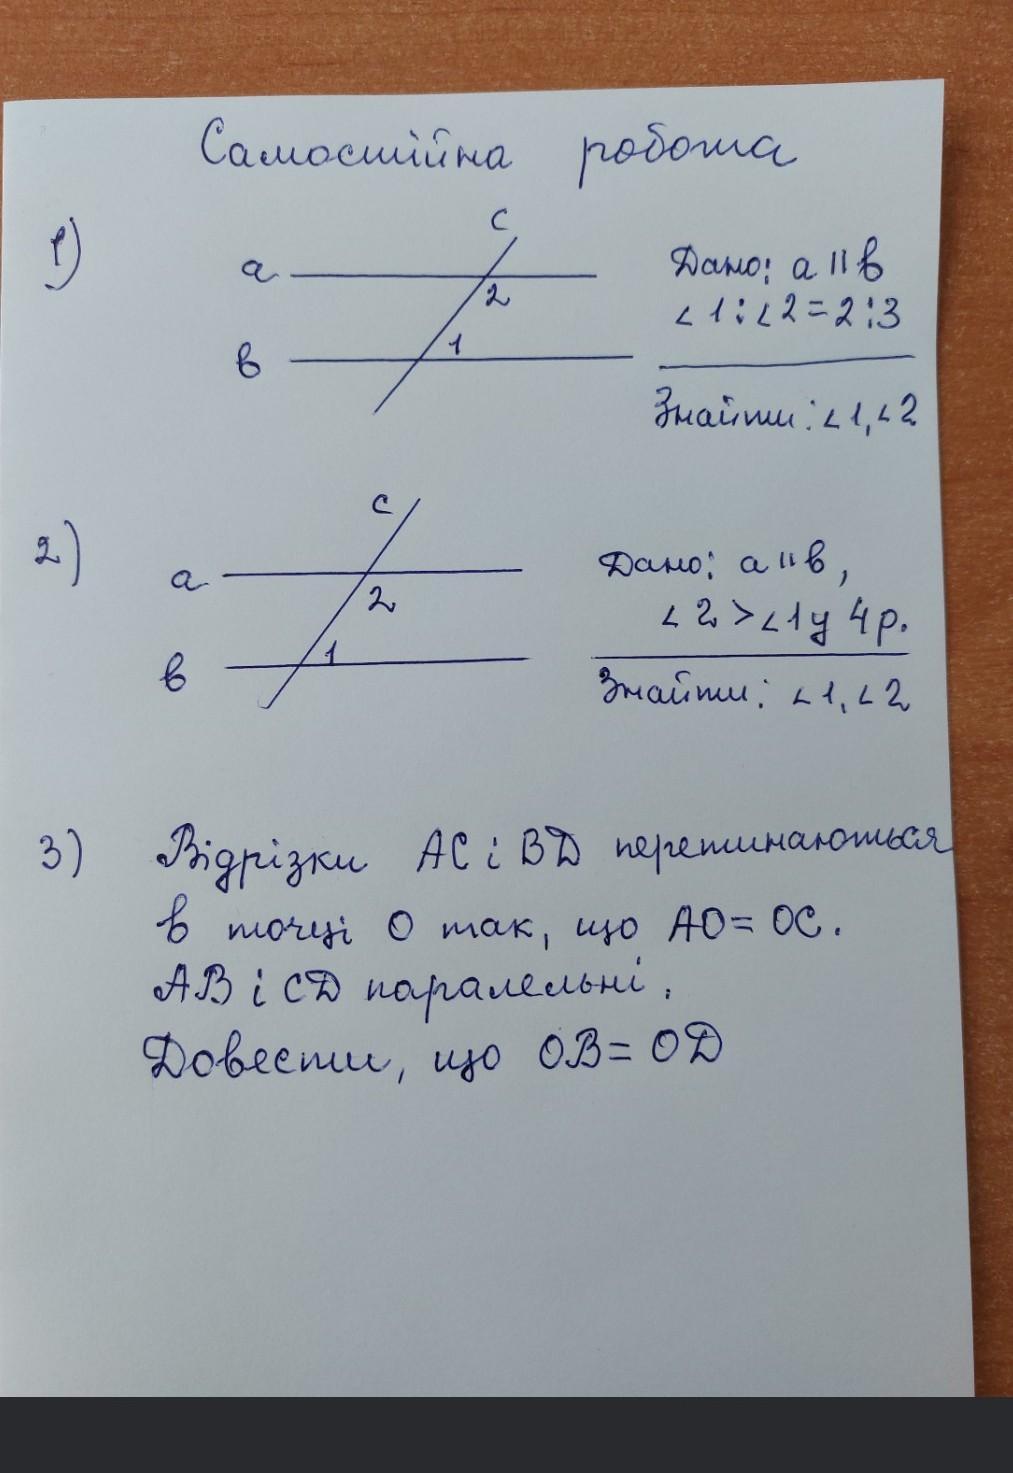 Самостійна робота
1)
c
a
2
1
в
Дано: a || в
∠1:∠2=2:3
Знайти: ∠1,∠2
2)
c
a
2
1
в
Дано: a || в,
∠2>∠1 у 4 р.
Знайти: ∠1,∠2
3) Відрізки AC і BD перетинаються
в точці O так, що AO=OC.
AB і CD паралельні.
Довести, що OB=OD